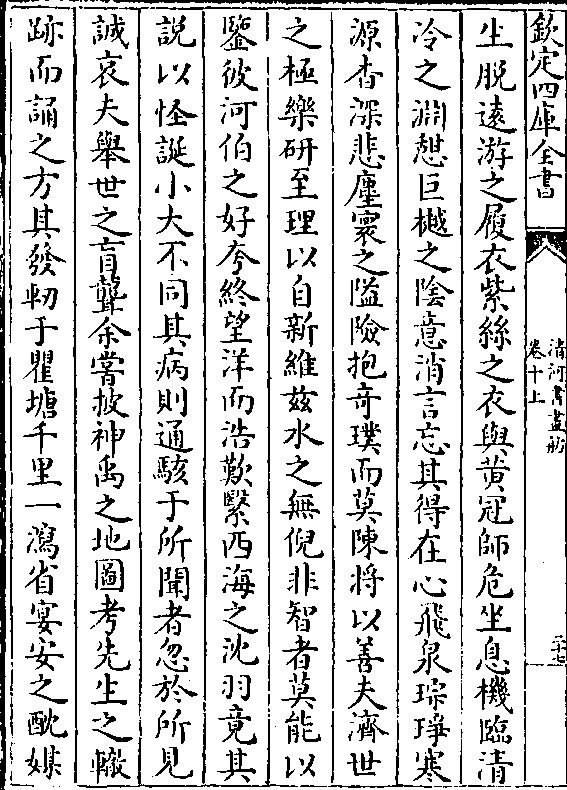 欽定四庫全書
清河書畫舫
卷十上
三十七
生脱逺游之履衣紫絲之衣與黄冠師危坐息機臨清
冷之淵憇巨樾之陰意消言忘其得在心飛泉琮琤寒
源杳深悲塵寰之隘險抱竒璞而莫陳將以善夫濟世
之極樂研至理以自新維兹水之無倪非智者莫能以
鑒彼河伯之好夸終望洋而浩歎緊西海之沈羽竟其
説以怪誕小大不同其病則通駭于所聞者忽於所見
誠哀夫舉世之盲聾余嘗披神禹之地圖考先生之轍
跡而誦之方其發軔于瞿塘千里一瀉省宴安之酖媒